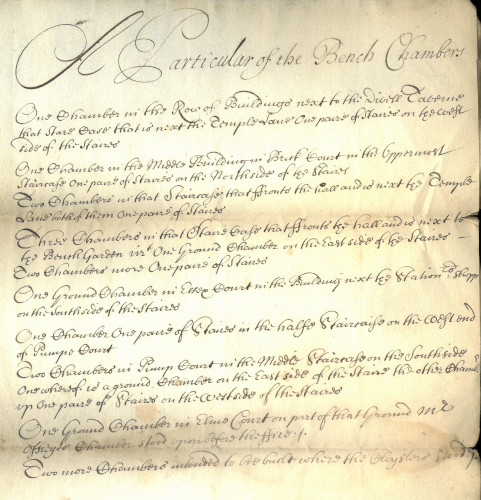 A Particular of the Bench Chambers
One Chamber in the Row of Buildings next to the Divell Taverne
that stare Case that is next the Temple Lane One paire of Staires on the West
side of the Staires
One Chamber in the Middle Building in Brick Court in the Uppermost
Staircase One paire of Staires on the Northside of the Staires
Two Chambers in that Staircase that ffronts the hall and is next the Temple
Lane both of them One paire of Staires
Three Chambers in that Staire Case that ffronts the hall and is next to
the Bench Garden vizt One Ground Chamber on the East side of the Staires
Two Chambers more One paire of Staires
One Ground Chamber in Essex Court in the Building next the Stationrs Shopp
on the Southside of the Staires
One Chamber One paire of Staires in the halfe Staircaise on the West end
of Pumpe Court
Two Chambers in Pump Court in the Middle Staircase on the Southside
One whereof is a ground Chamber on the East side of the Staire the other Chamb
up One paire of Staires on the Westside of the Staires
One Ground Chamber in Elme Court on part of that Ground Mr
Chamber stood upon before the ffire
Two more Chambers intended to bee built where the Cloysters stood